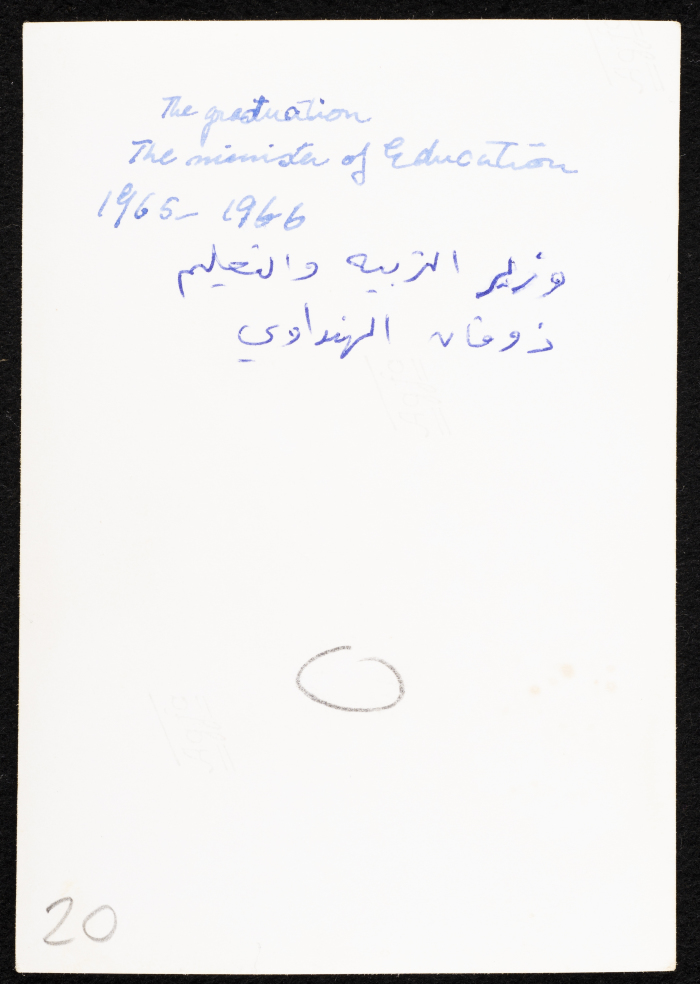 The graduation
The minister of Education
1965- 1966
وزير التربيه والتعليم
ذوقان الهنداوي
20